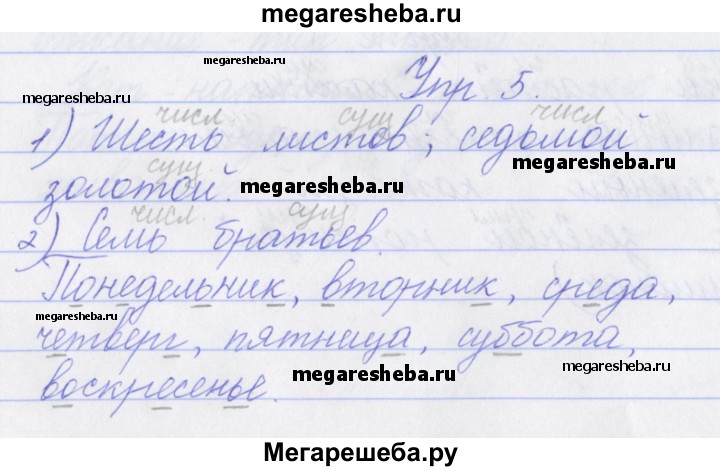 megaresheba.ru
megaresheba.ru
Упр 5.
megaresheba.ru
числ. сущ числ.
1) Шесть листов; седьмой
megaresheba.ru
сущ.
золотой.
megaresheba.ru
числ. сущ
2) Семь братьев.
Понедельник, вторник, среда,
megaresheba.ru
четверг, пятница, суббота,
воскресенье.
megaresheba.ru
megaresheba.ru
Мегарешеба.ру